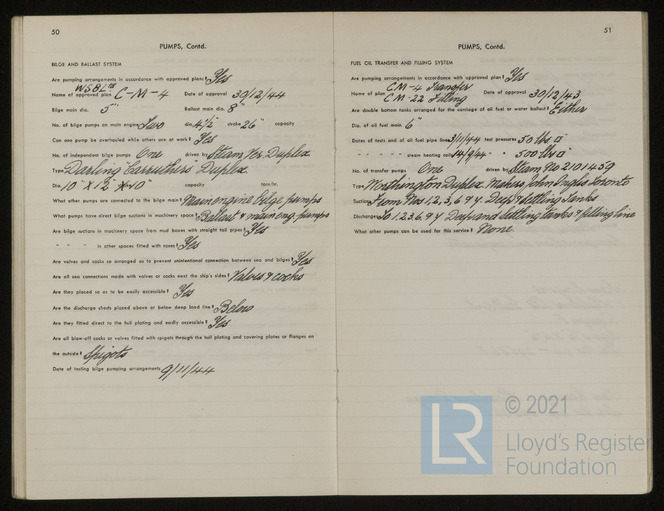 50
PUMPS, Contd.
BILGE AND BALLAST SYSTEM
Are pumping arrangements in accordance with approved plan? Yes
WSBL's
Name of approved plan C-M-4 Date of approval 30/12/44
Bilge main dia. 5" Ballast main dia. 8"
No. of bilge pumps on main engine Two dia. 4½ stroke 26" capacity
Can one pump be overhauled while others are at work? Yes
No. of independent bilge pumps One driven by Steam Hor. Duplex
Type Darling Carruthers Duplex
Dia. 10" x 12" x 10" capacity ton/hr.
What other pumps are connected to the bilge main? Main engine bilge pumps
What pumps have direct bilge suctions in machinery space? Ballast & main eng. pumps
Are bilge suctions in machinery space from mud boxes with straight tail pipes? Yes
" " " in other spaces fitted with roses? Yes
Are valves and cocks so arranged as to prevent unintentional connection between sea and bilges? Yes
Are all sea connections made with valves or cocks next the ship's sides? Valves & cocks
Are they placed so as to be easily accessible? Yes
Are the discharge chests placed above or below deep load line? Below
Are they fitted direct to the hull plating and easily accessible? Yes
Are all blow-off cocks or valves fitted with spigots through the hull plating and covering plates or flanges on
the outside? Spigots
Date of testing bilge pumping arrangements 9/11/44
51
PUMPS, Contd.
FUEL OIL TRANSFER AND FILLING SYSTEM
Are pumping arrangements in accordance with approved plan? Yes
CM-4 Transfer
Name of plan CM-22 Filling Date of approval 30/12/43
Are double bottom tanks arranged for the carriage of oil fuel or water ballast? Either
Dia. of oil fuel main 6"
Dates of tests and oil fuel pipe lines 3/11/44 test pressures 50 lbs □"
" " " steam heating coils 14/9/44 " " 500 lbs □"
No. of transfer pumps One driven by Steam No 2101459
Type Worthington Duplex Makers John Inglis Toronto
Suctions From Nos 1, 2, 3, 6 & 4 Deep & Settling tanks
Discharges To 1, 2, 3, 6, & 4 Deep and settling tanks & filling line
What other pumps can be used for this service? None
© 2021
LR
Lloyd's Register
Foundation